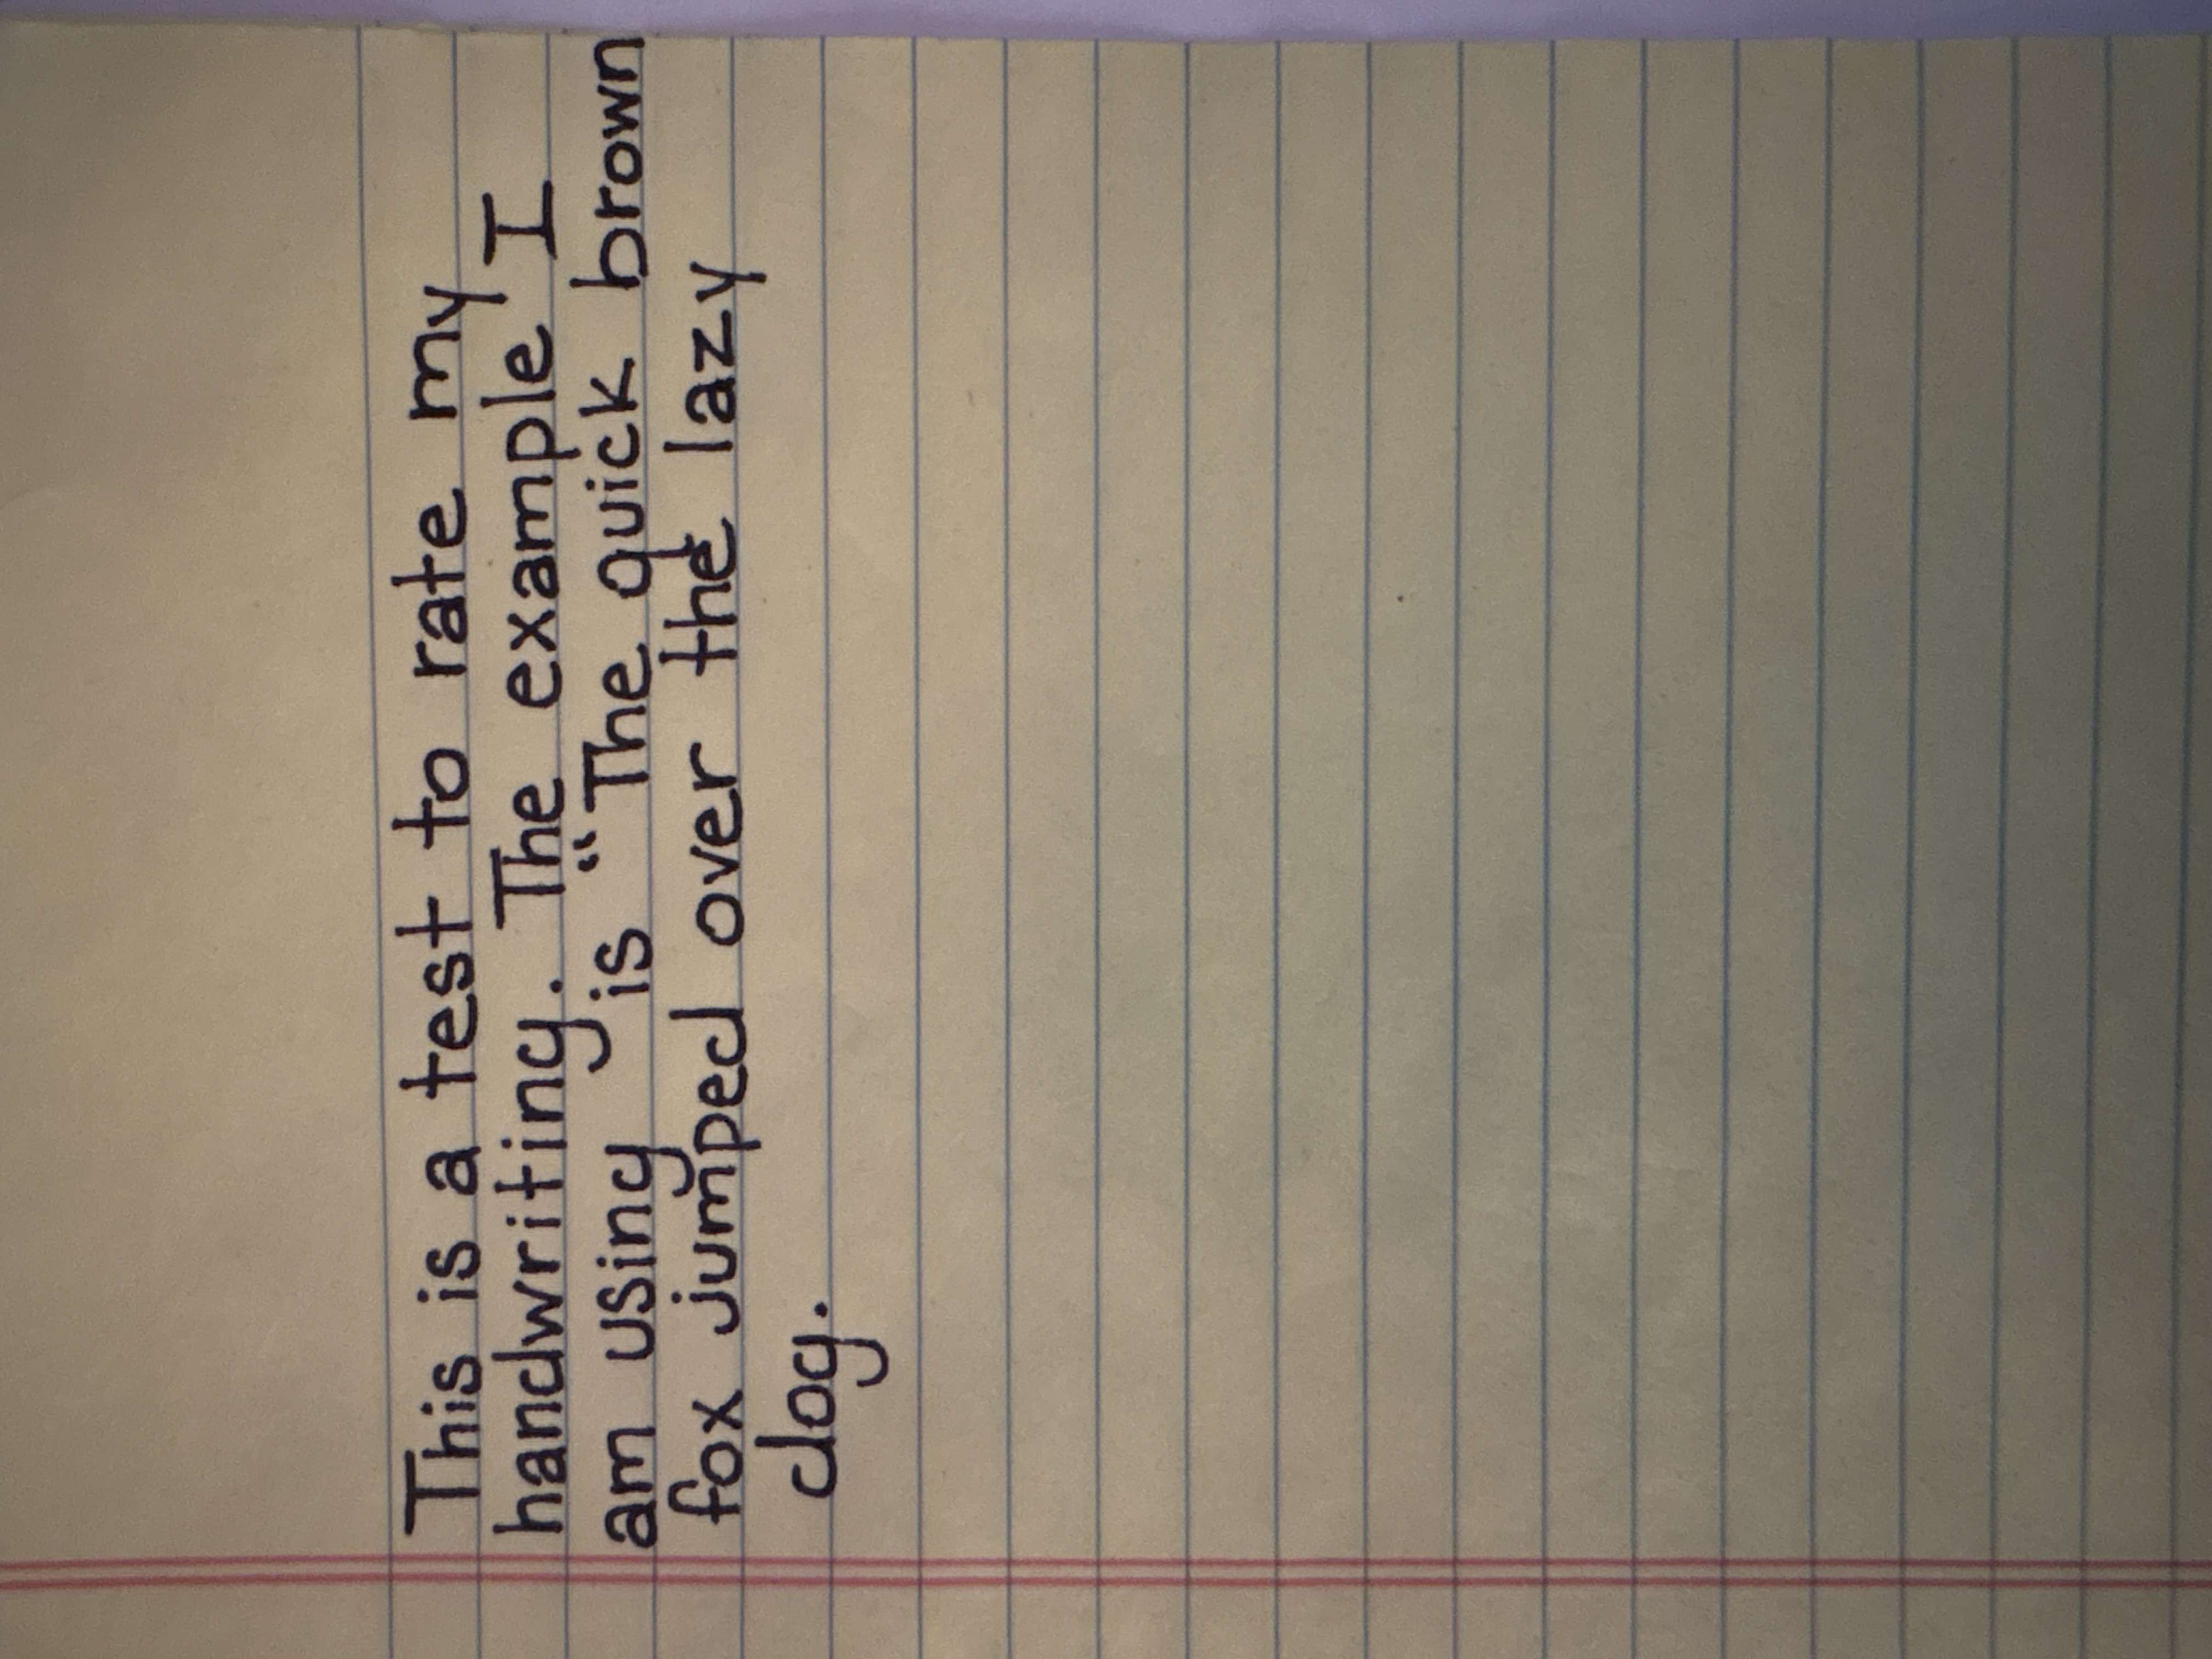 This is a test to rate my
handwriting. The example I
am using is “The quick brown
fox jumped over the lazy
dog.